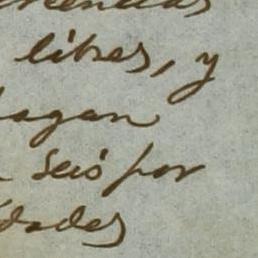 libres, y
hagan
seis por
dades